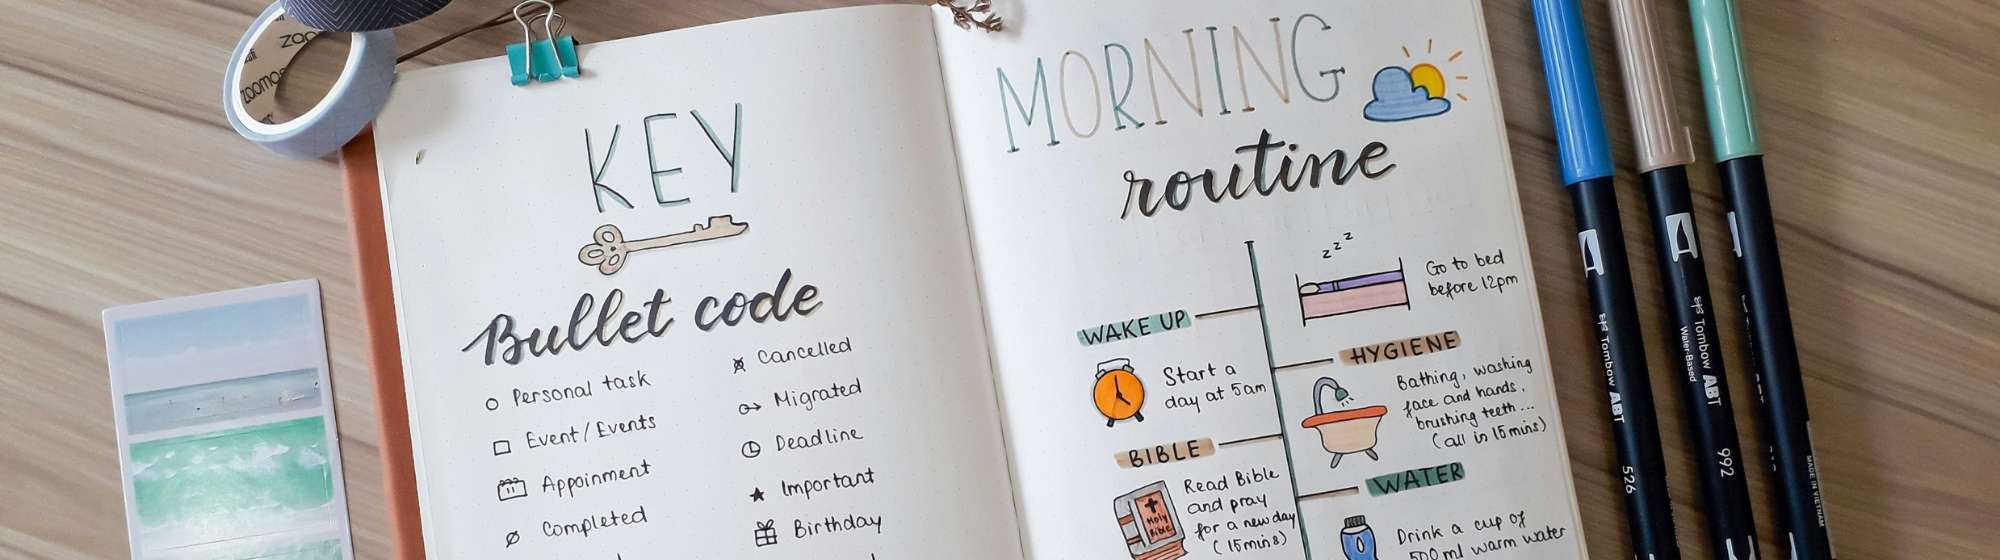 zoom
zoomo
KEY
Bullet code
Personal task
Event/Events
Appoinment
Completed
Cancelled
Migrated
Deadline
Important
Birthday
MORNING
routine
zzz
Go to bed
before 12pm
WAKE UP
Start a
day at 5am
HYGIENE
Bathing, washing
face and hands,
brushing teeth...
(all in 15mins)
BIBLE
Holy
Bible
Read Bible
and pray
for a new day
(15mins)
WATER
Drink a cup of
500 ml warm water
Tombow ABT
526
Tombow ABT
Water-Based
992
MADE IN VIETNAM